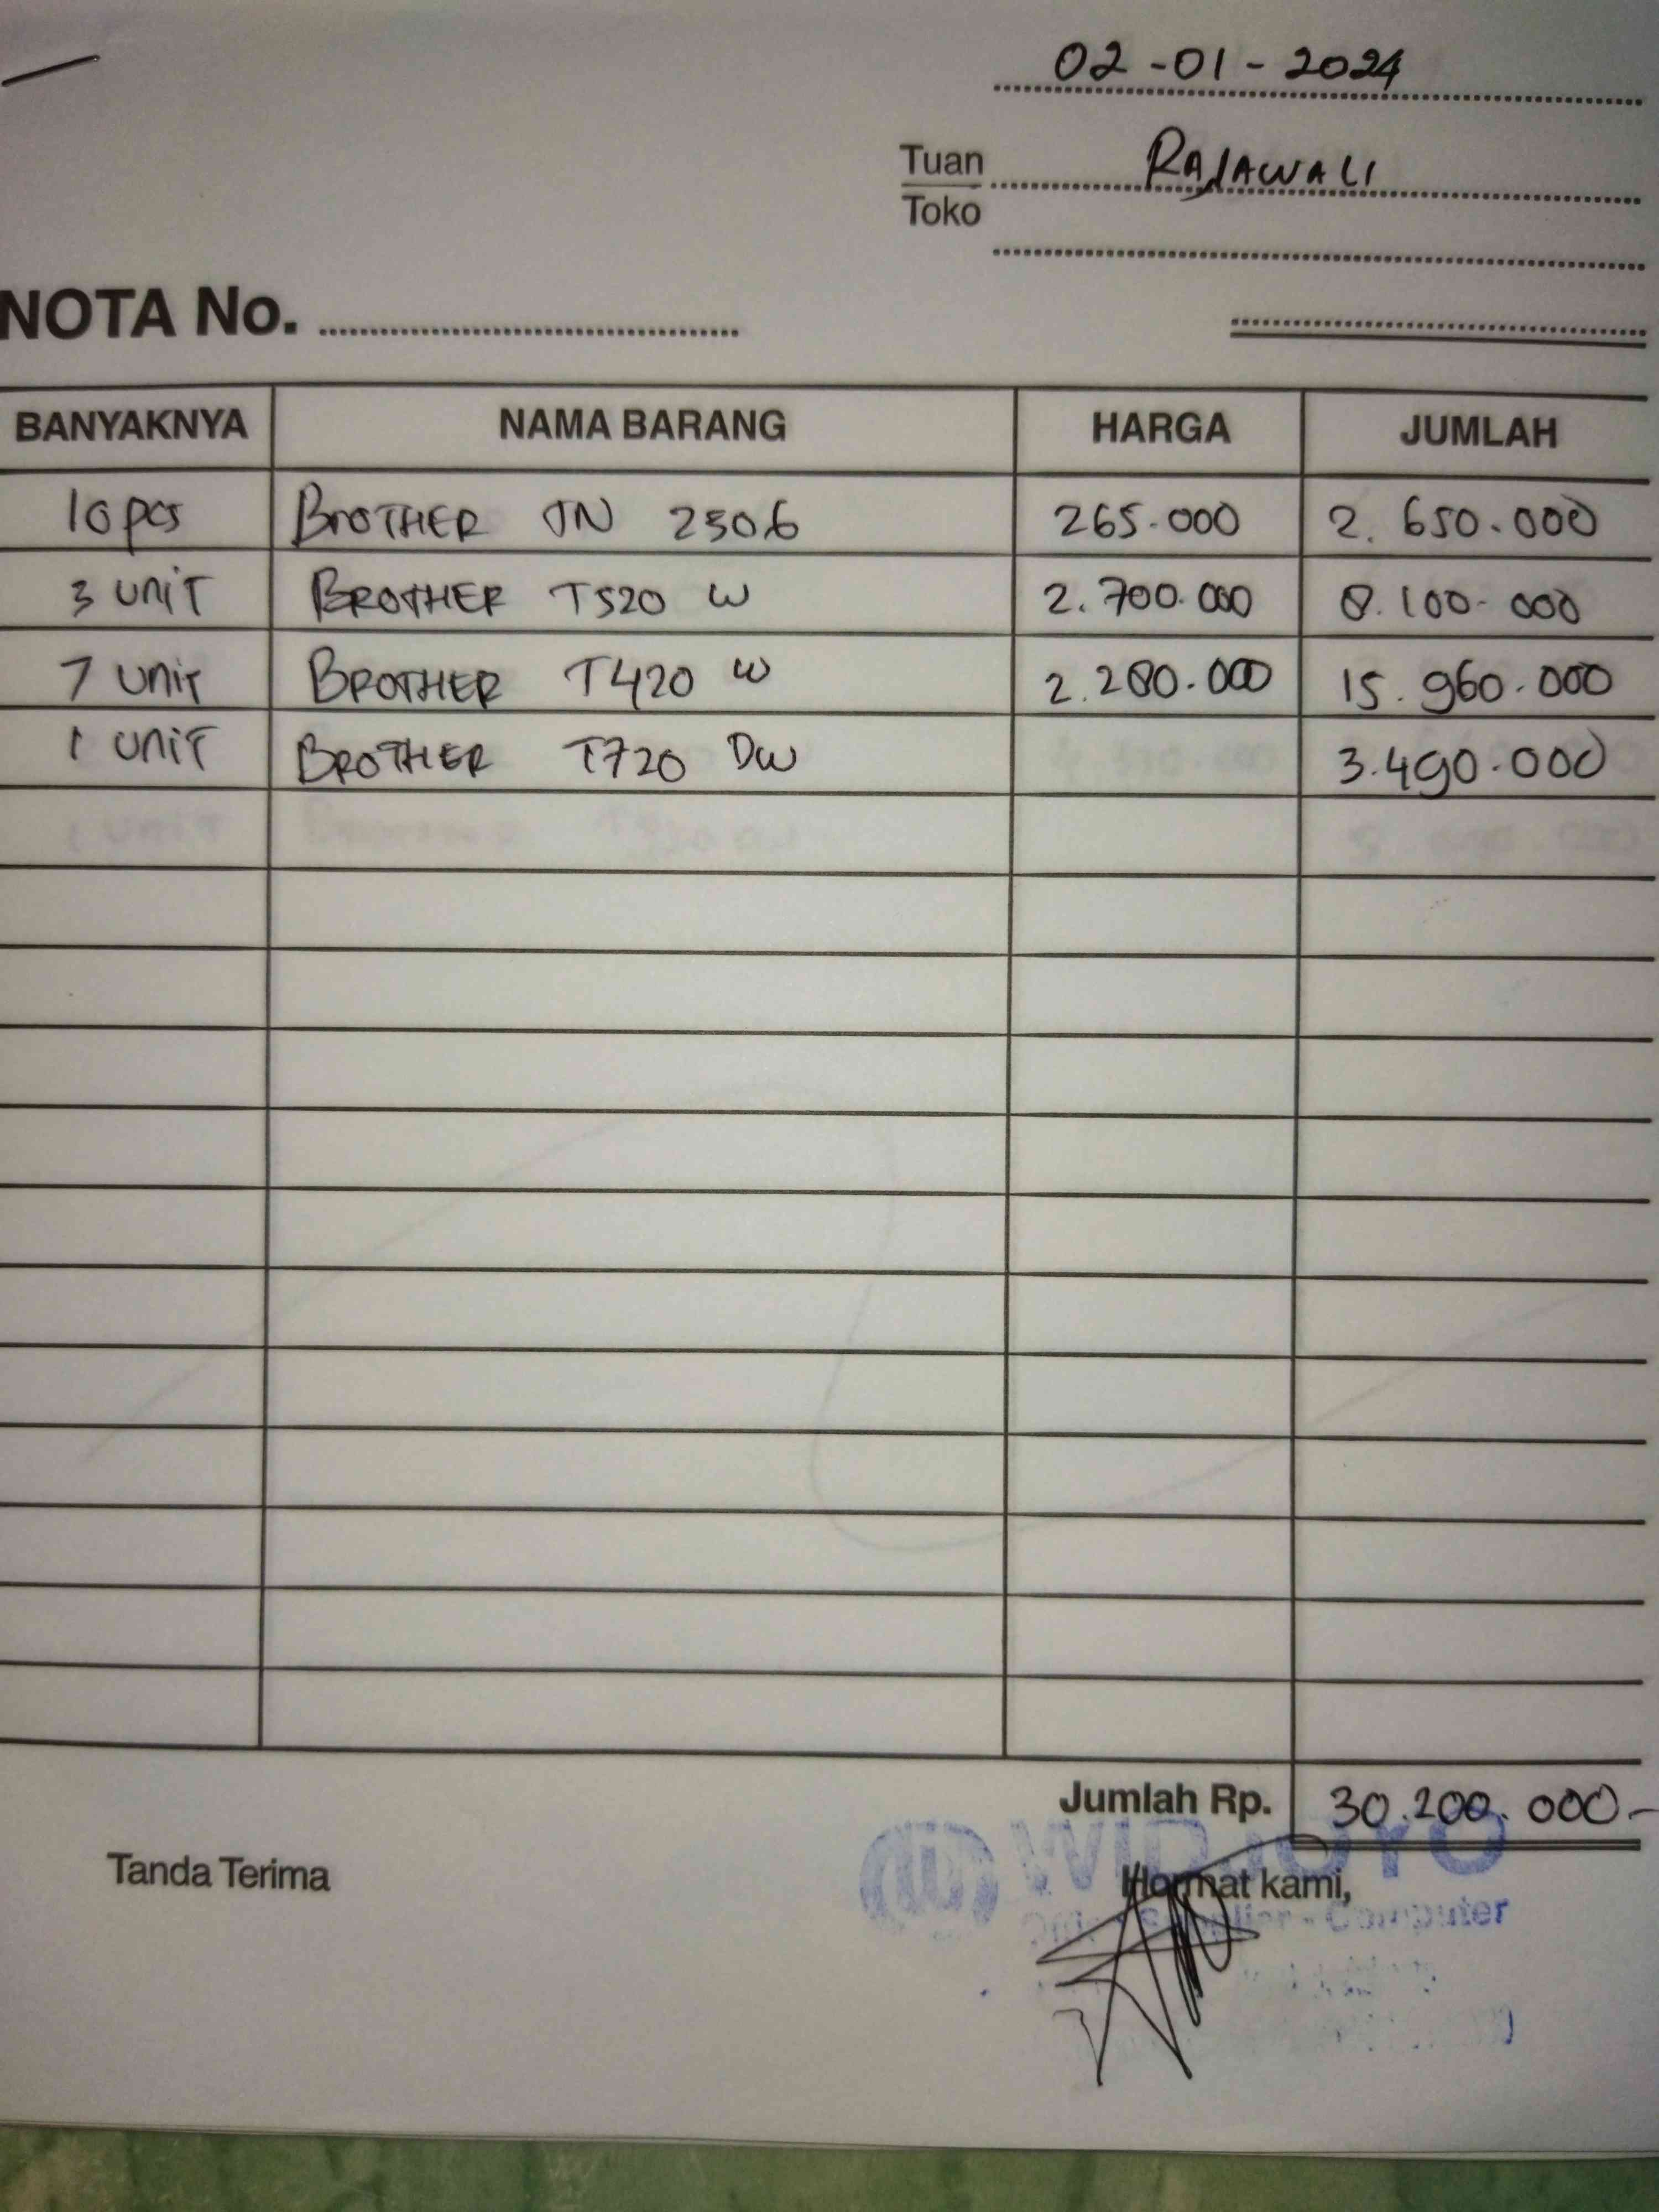 02-01-2024
Tuan RAJAWALI
Toko
NOTA No.
BANYAKNYA NAMA BARANG HARGA JUMLAH
10 pcs BROTHER TN 2306 265.000 2.650.000
3 UNIT BROTHER T520 W 2.700.000 8.100.000
7 UNIT BROTHER T420 W 2.280.000 15.960.000
1 UNIT BROTHER T720 DW 3.490.000
Jumlah Rp. 30.200.000-
Tanda Terima Hormat kami,
Computer